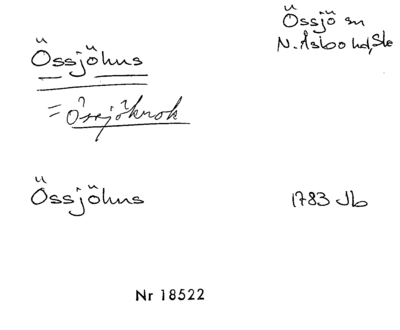 Össjöhus
Össjö sn
N. Åsbo hd, Sk
= Össjökrok
Össjöhus
1783 Jb
Nr 18522